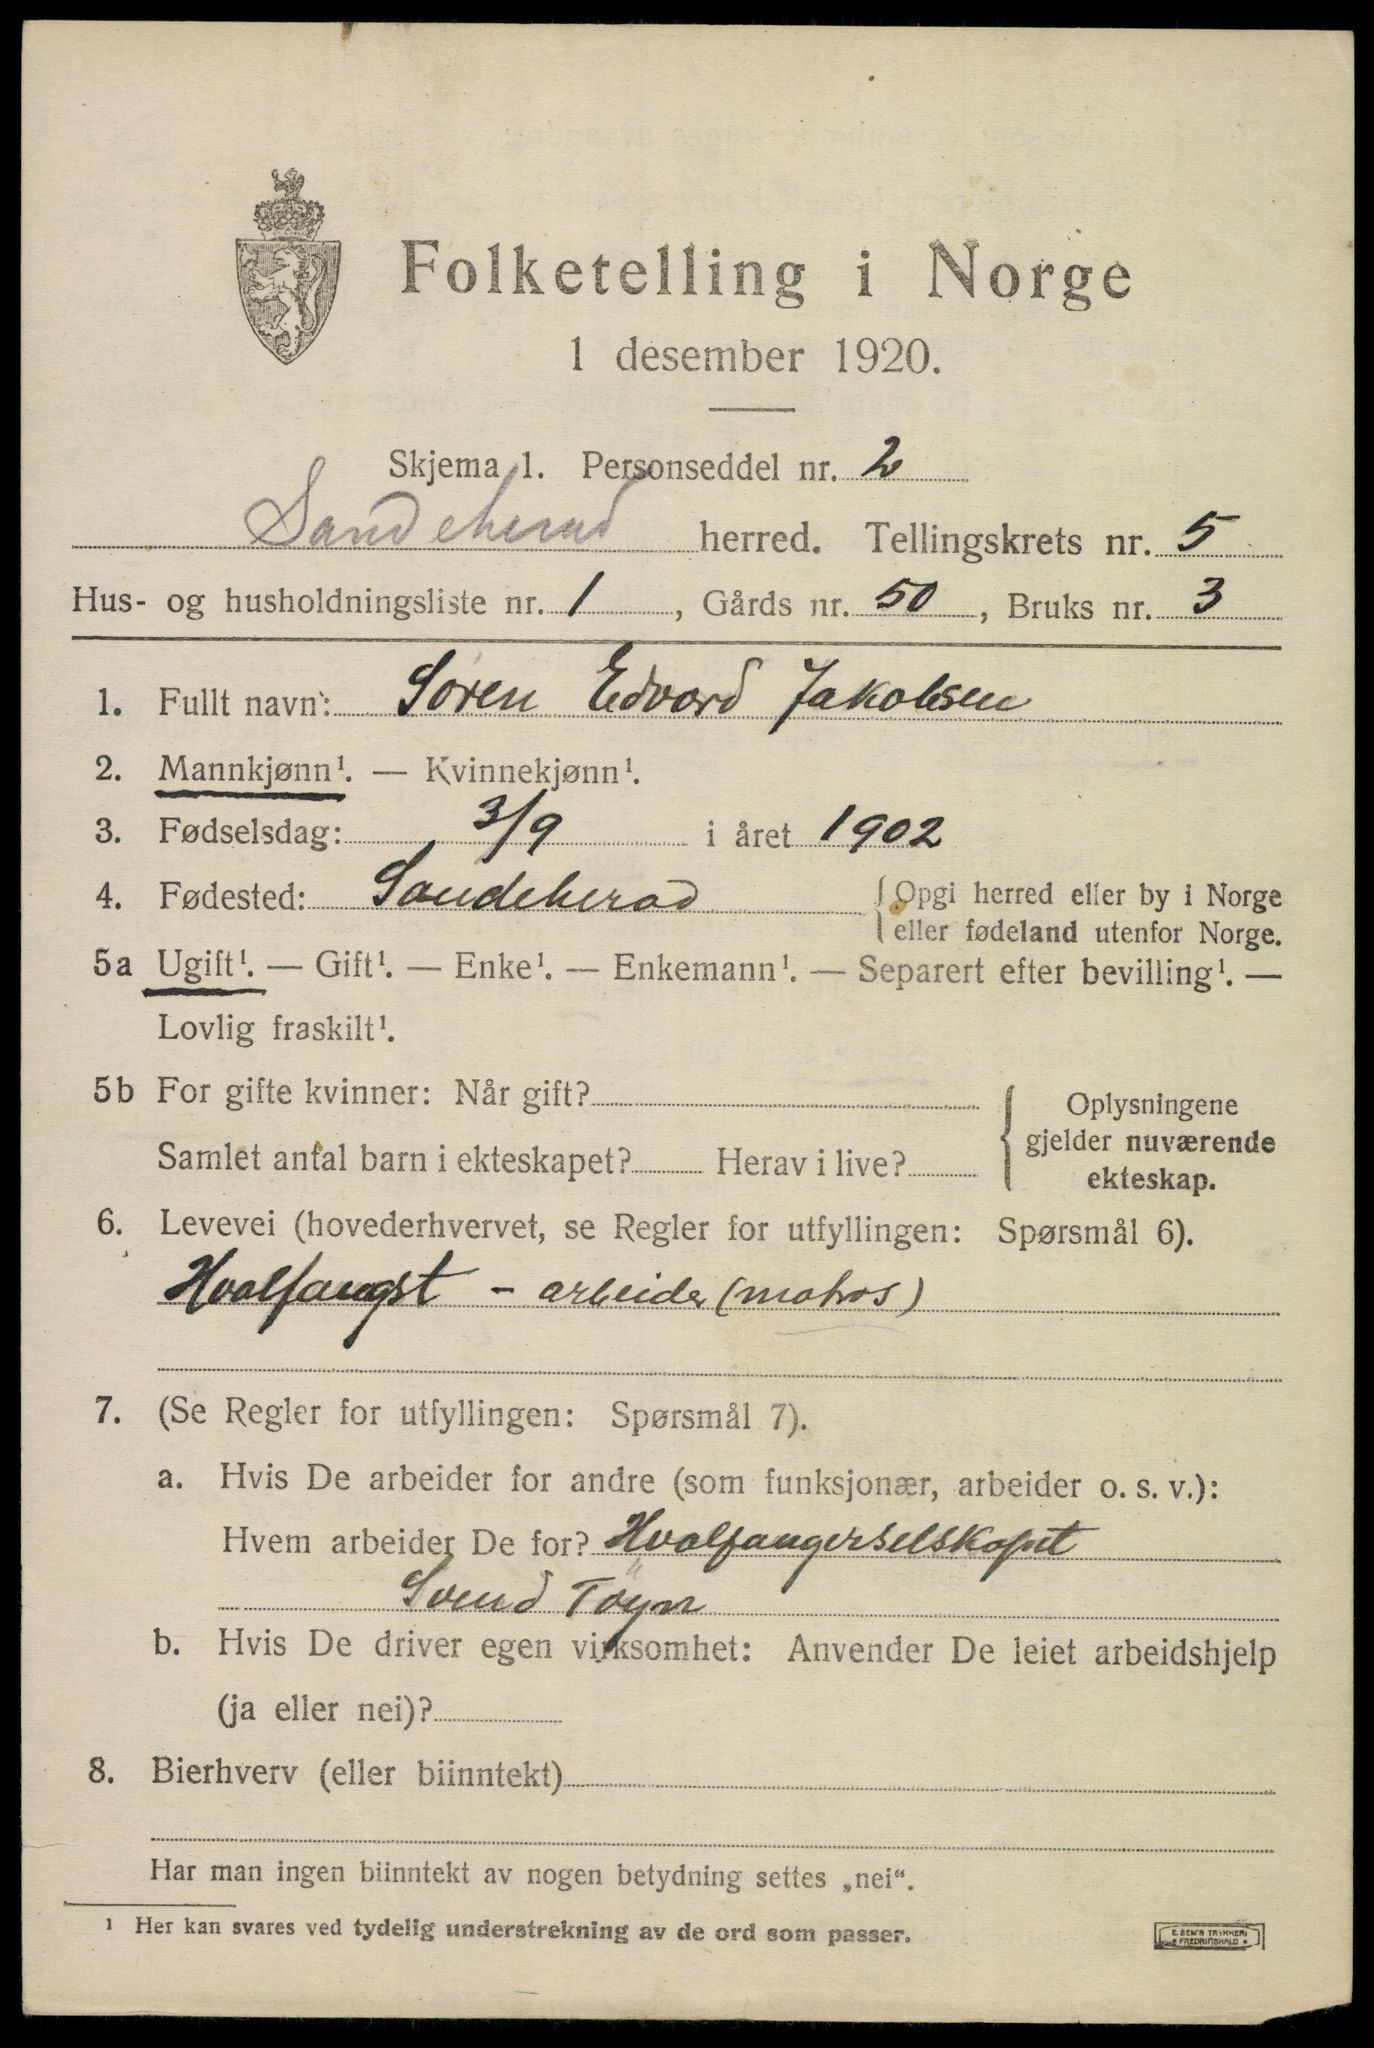 Folketelling i Norge
1 desember 1920.
Skjema 1. Personseddel nr. 2
Sandeherad herred. Tellingskrets nr. 5
Hus- og husholdningsliste nr. 1, Gårds nr. 50, Bruks nr. 3
1. Fullt navn: Søren Edvard Jakobsen
2. Mannkjønn¹. — Kvinnekjønn¹.
3. Fødselsdag: 3/9 i året 1902
4. Fødested: Sandeherad { Opgi herred eller by i Norge
eller fødeland utenfor Norge.
5a Ugift¹. — Gift¹. — Enke¹. — Enkemann¹. — Separert efter bevilling¹. —
Lovlig fraskilt¹.
5b For gifte kvinner: Når gift? { Oplysningene
gjelder nuværende
ekteskap.
Samlet antal barn i ekteskapet? Herav i live?
6. Levevei (hovederhvervet, se Regler for utfyllingen: Spørsmål 6).
Hvalfangst - arbeider (matros)
7. (Se Regler for utfyllingen: Spørsmål 7).
a. Hvis De arbeider for andre (som funksjonær, arbeider o. s. v.):
Hvem arbeider De for? Hvalfangerselskapet
Svend Föyn
b. Hvis De driver egen virksomhet: Anvender De leiet arbeidshjelp
(ja eller nei)?
8. Bierhverv (eller biinntekt)
Har man ingen biinntekt av nogen betydning settes „nei“.
¹ Her kan svares ved tydelig understrekning av de ord som passer.
E. SEM'S TRYKKERI
FREDRIKSHALD